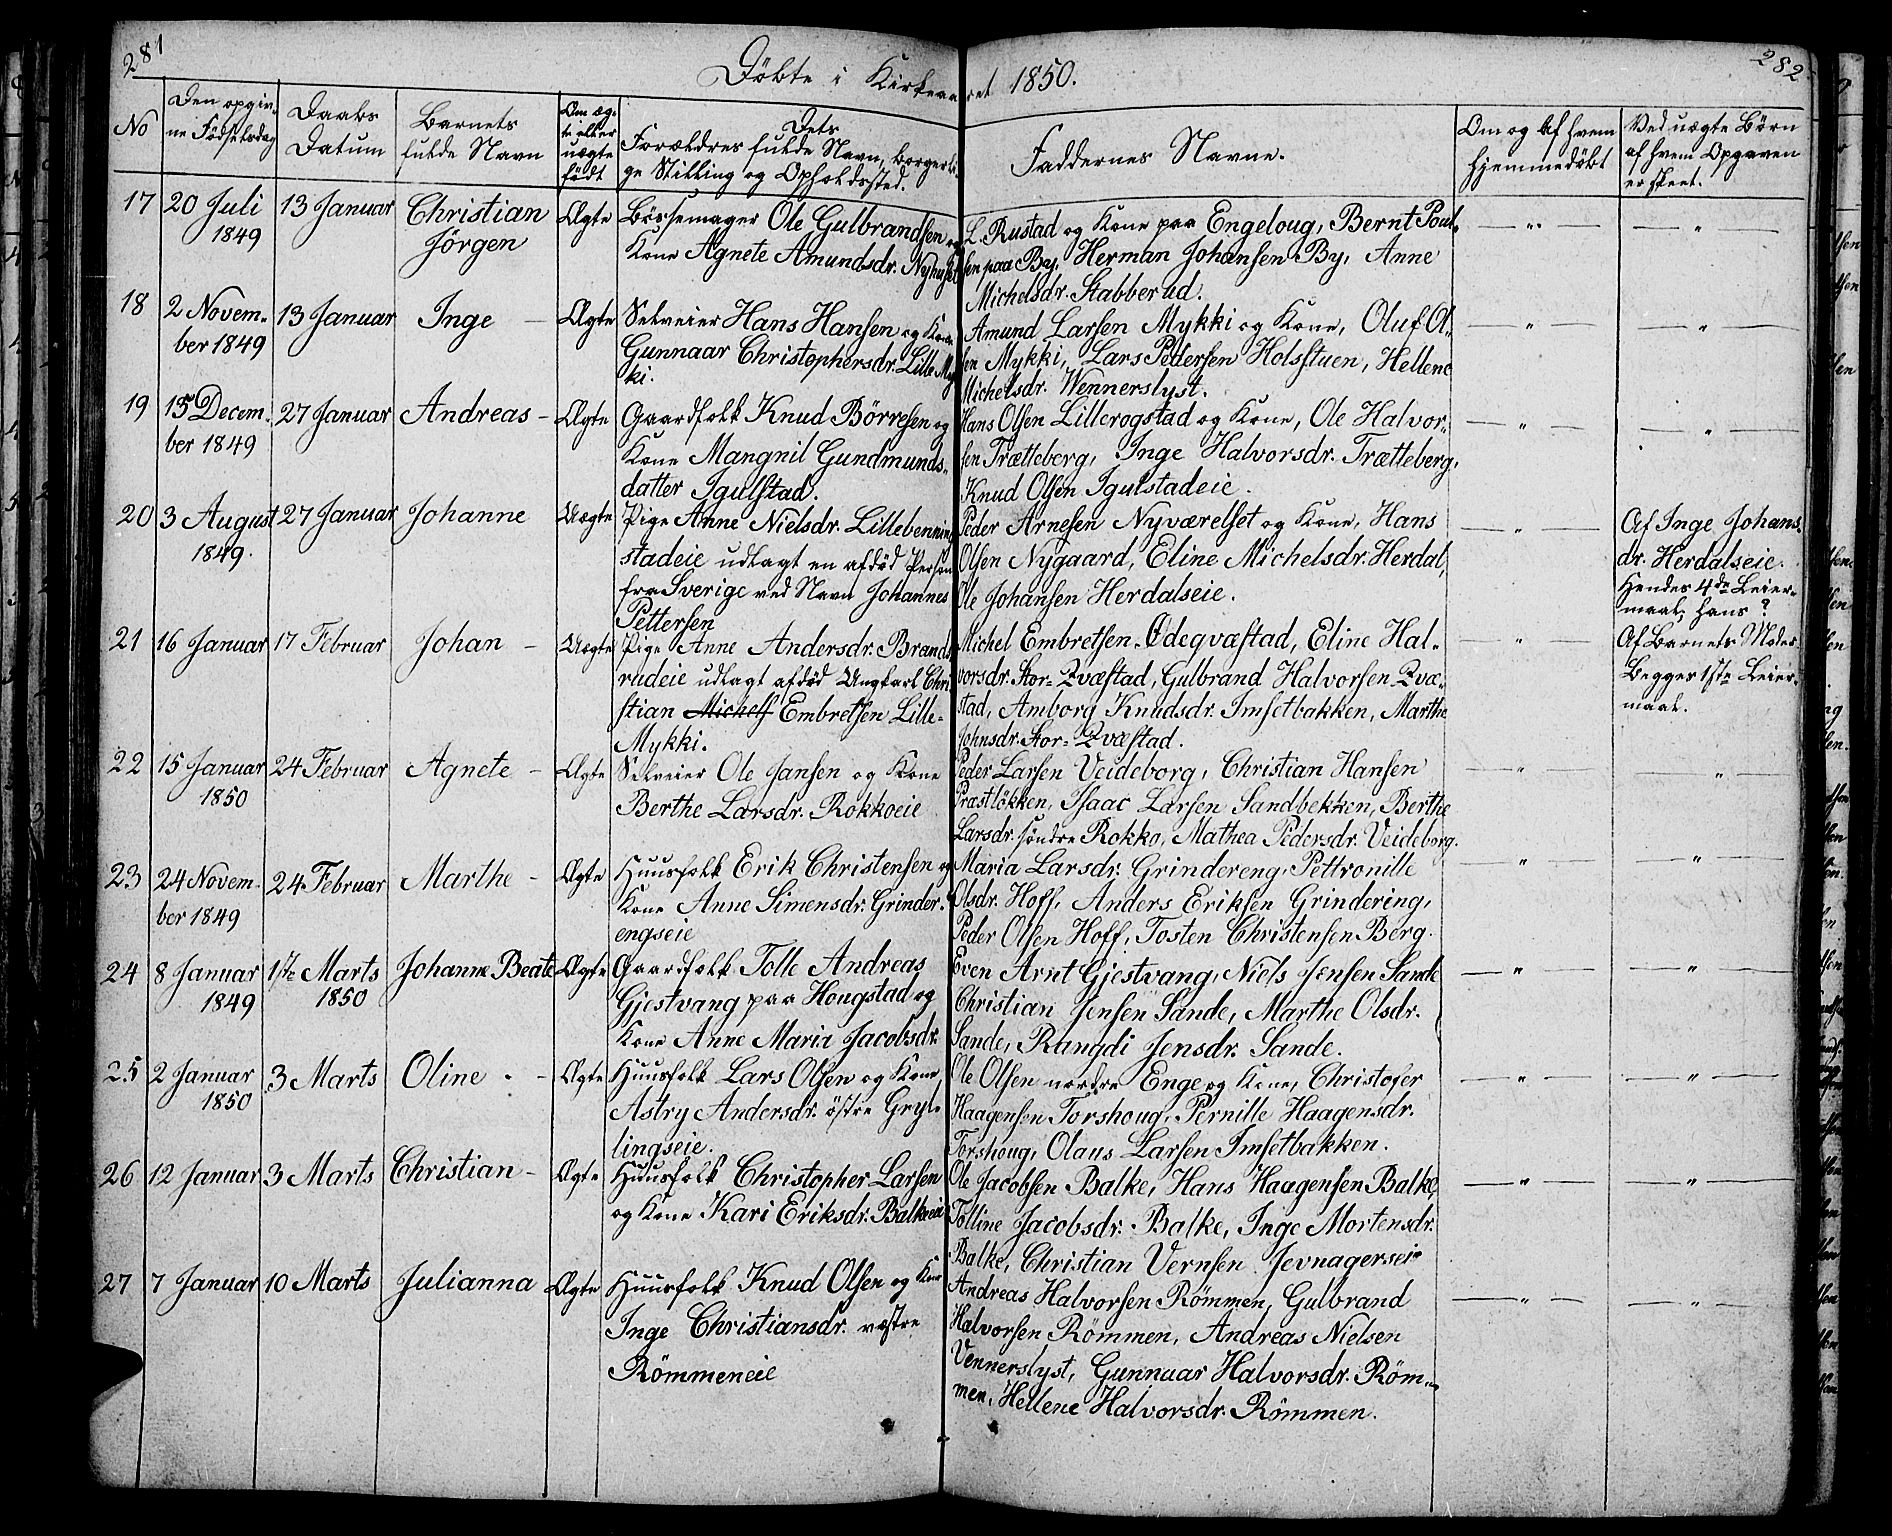 281
282
Döbte i Kirkeaaret 1850.
No
Den opgivne Födselsdag
Daabs Datum
Barnets fulde Navn
Om ægte eller uægte födt
Dets Forældres fulde Navn, borgerlige Stilling og Opholdssted.
Faddernes Navne.
Om og af hvem hjemmedöbt
Ved uægte Börn af hvem Opgaven er skeet.
17 20 Juli 13 Januar Christian Ægte Bössemager Ole Gulbrandsen og L. Rustad og Kone paa Engeloug, Bernt Poul- — " — — " —
1849 Jörgen Kone Agnete Amundsdr. Nyhuset sen paa By, Herman Johansen By, Anne
Michelsdr. Stabberud.
18 2 Novem- 13 Januar Inge — Ægte Selveier Hans Hansen og Kone Amund Larsen Mykki og Kone, Oluf Ol- — " — — " —
ber 1849 Gunnaar Christophersdr. Lille Myk- sen Mykki, Lars Pedersen Holsstuen, Hellene
ki. Michelsdr. Wennerslyst.
19 15 Decem- 27 Januar Andreas — Ægte Gaardfolk Knud Börresen og Hans Olsen Lillerogstad og Kone, Ole Halvor- — " — — " —
ber 1849 Kone Mangnil Gundmunds- sen Trætteberg, Inge Halvorsdr. Trætteberg,
datter Igulstad. Knud Olsen Igulstadeie.
20 3 August 27 Januar Johanne Uægte Pige Anne Nielsdr. Lillebenning- Peder Arnesen Nyværelset og Kone, Hans — " — Af Inge Johans-
1849. stadeie udlagt en afdöd Person Olsen Nygaard, Eline Michelsdr. Herdal, dr. Herdalseie.
fra Sverige ved Navn Johannes Ole Johansen Herdalseie. Hendes 4de Leier-
Pettersen maal, hans?
21 16 Januar 17 Februar Johan — Uægte Pige Anne Andersdr. Brands- Michel Embretsen Ödeqvæstad, Eline Hal- — " — Af Barnets Moder
rudeie udlagt afdöd Ungkarl Chri- vorsdr. Stor-Qvæstad, Gulbrand Halvorsen Qvæ- Begges 1ste Leier-
stian Michels Embretsen Lille- stad, Amborg Knudsdr. Imsetbakken, Marthe maal.
Mykki. Johnsdr. Stor-Qvæstad.
22 15 Januar 24 Februar Agnete — Ægte Selveier Ole Jansen og Kone Peder Larsen Veideborg, Christian Hansen — " — — " —
1850 Berthe Larsdr. Rokkoeie Præstlökken, Isaac Larsen Sandbekken, Berthe
Larsdr. söndre Rokko, Mathea Pedersdr. Veideborg.
23 24 Novem- 24 Februar Marthe — Ægte Huusfolk Erik Christensen og Maria Larsdr. Grindereng, Pettronille — " — — " —
ber 1849 Kone Anne Simensdr. Grinder- Olsdr. Hoff, Anders Eriksen Grindering,
engseie Peder Olsen Hoff, Tosten Christensen Berg.
24 8 Januar 1ste Marts Johanne Beate Ægte Gaardfolk Tolle Andreas Even Arnt Gjestvang, Niels Jensen Sande — " — — " —
1849 1850 Gjestvang paa Hougstad og Christian Jensen Sande, Marthe Olsdr.
Kone Anne Maria Jacobsdr. Sande, Rangdi Jensdr. Sande.
25 2 Januar 3 Marts Oline — Ægte Huusfolk Lars Olsen og Kone Ole Olsen nordre Enge og Kone, Christofer — " — — " —
1850 Astry Andersdr. östre Gryl- Haagensen Torshoug, Pernille Haagensdr.
lingseie. Torshoug, Olaus Larsen Imsetbakken.
26 12 Januar 3 Marts Christian — Ægte Huusfolk Christopher Larsen Ole Jacobsen Balke, Hans Haagensen Balke, — " — — " —
og Kone Kari Eriksdr. Balkeeie Tolline Jacobsdr. Balke, Inge Mortensdr.
Balke, Christian Vernsen Jevnagerseie
27 7 Januar 10 Marts Julianna Ægte Huusfolk Knud Olsen og Kone Andreas Halvorsen Römmen, Gulbrand — " — — " —
Inge Christiansdr. væstre Halvorsen Römmen, Andreas Nielsen
Römmeneie Vennerslyst, Gunnaar Halvorsdr. Röm-
men, Hellene Halvorsdr. Römmen.